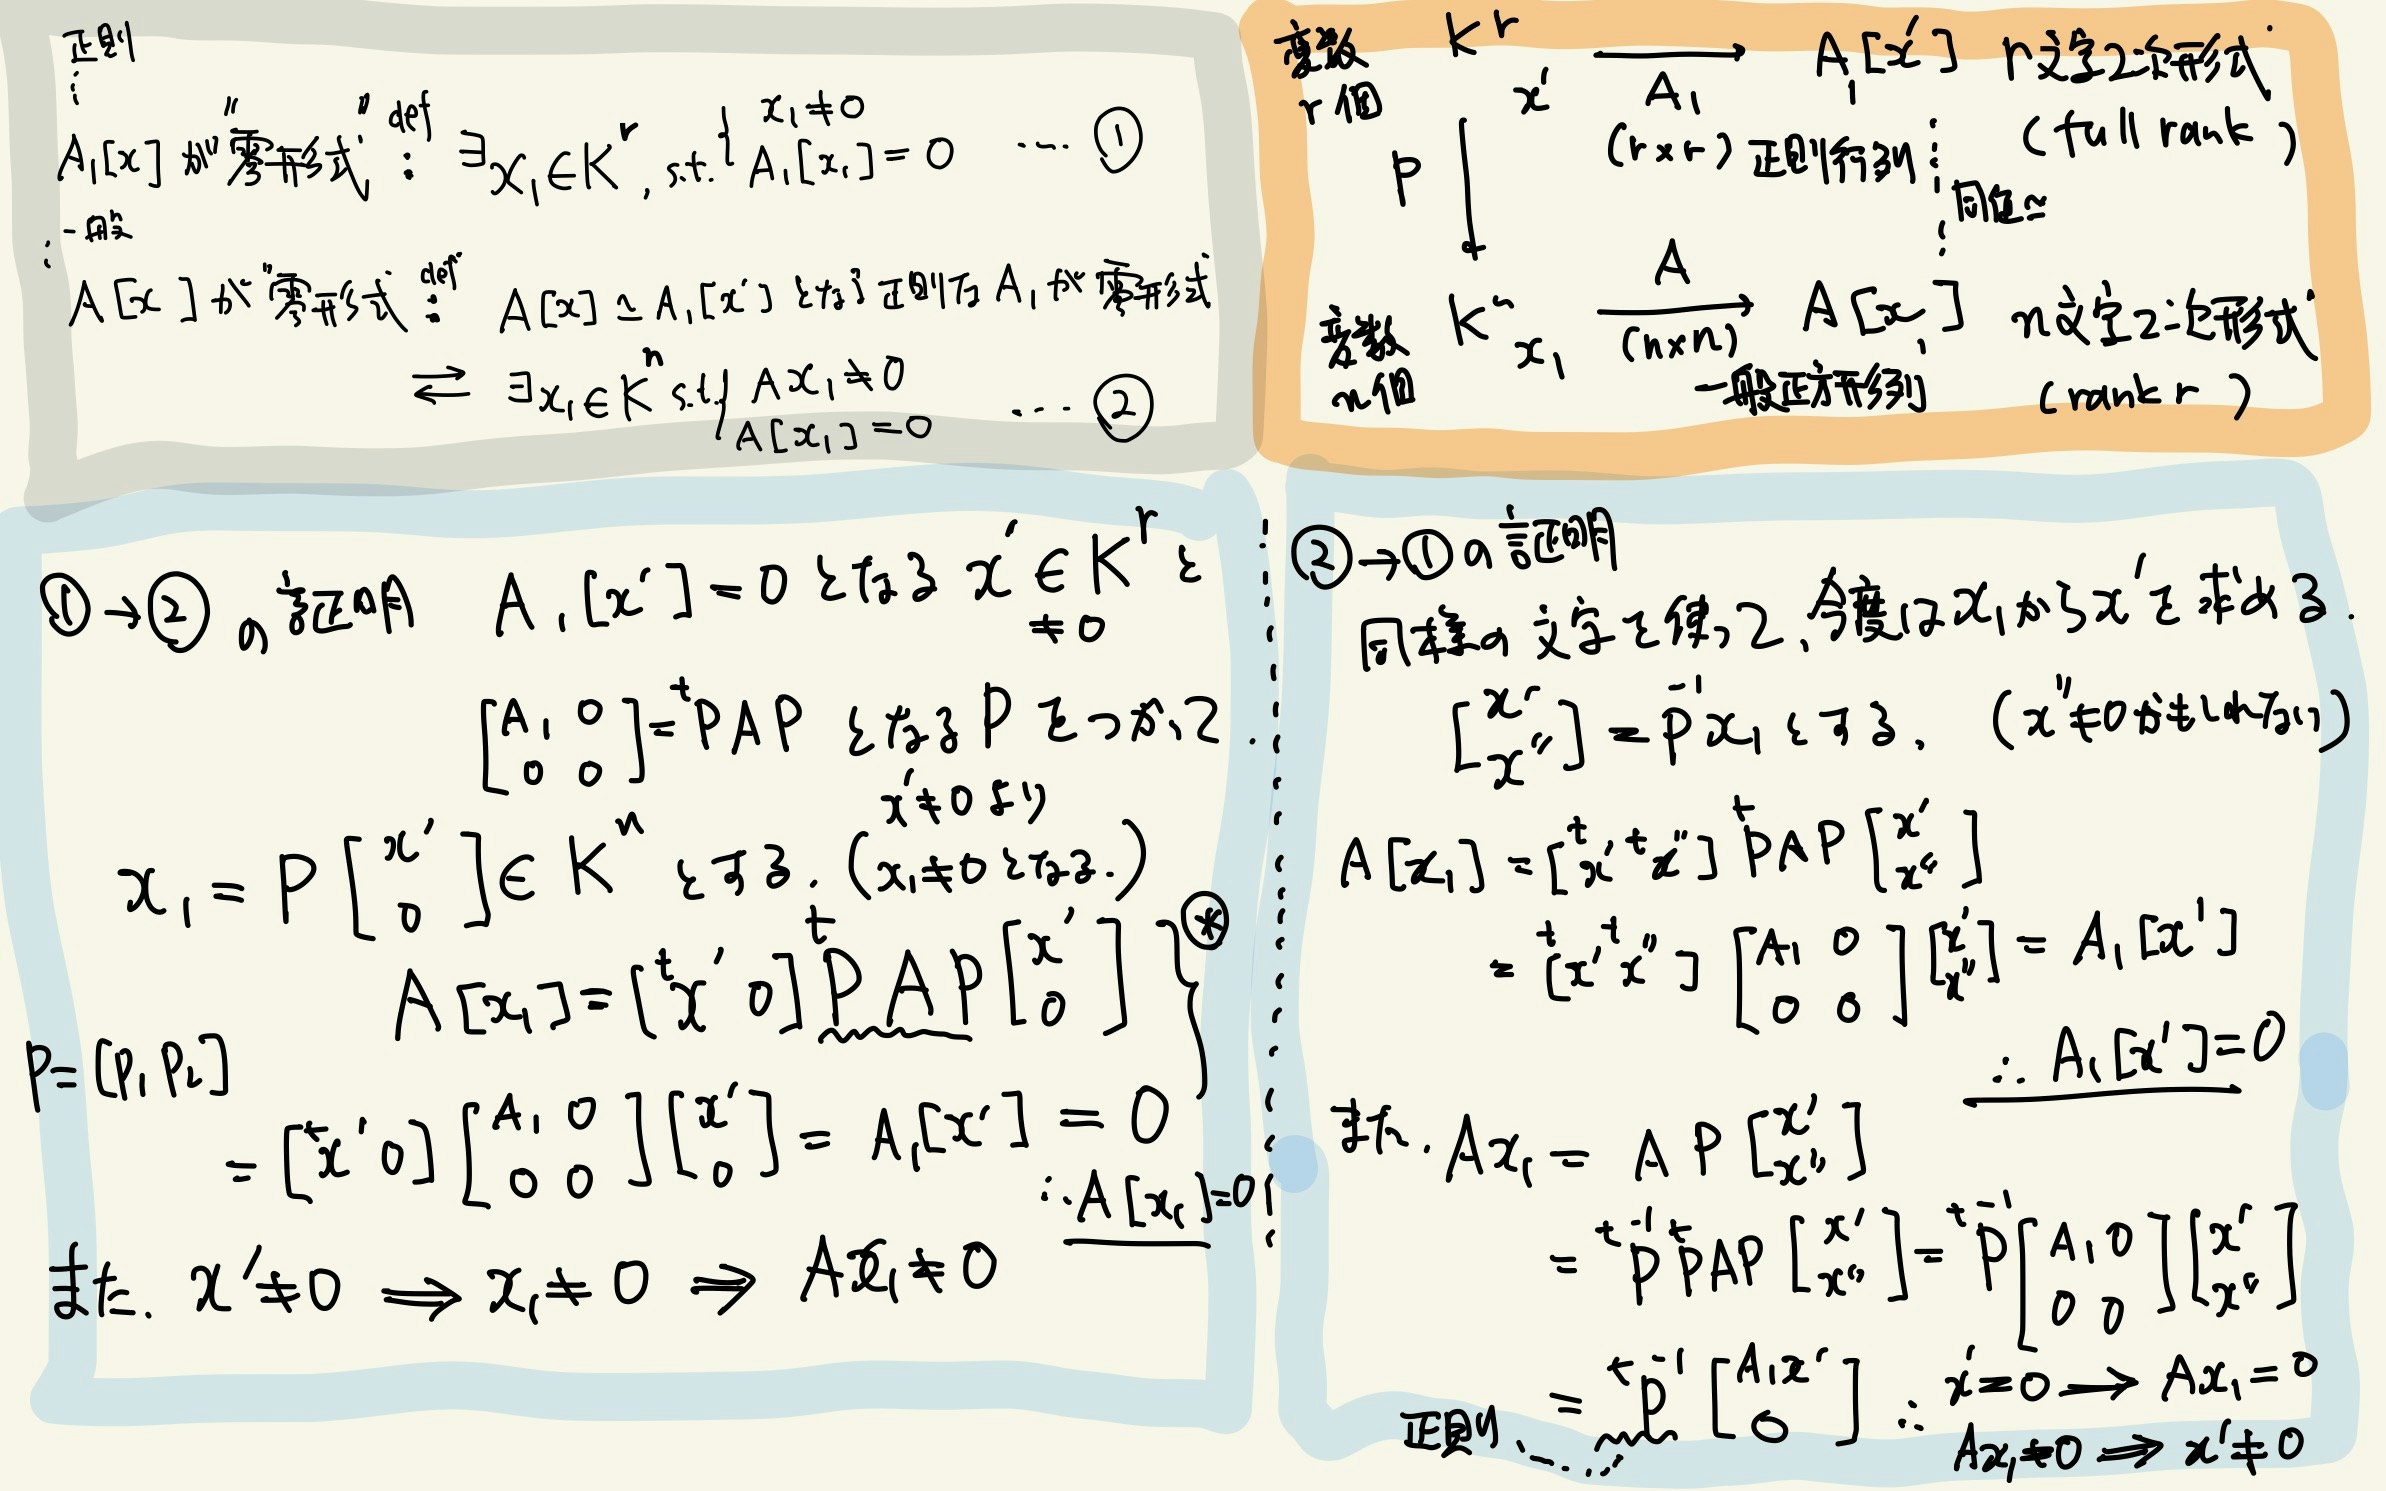 正則
A₁[x] が "零形式" def : ∃x₁∈Kʳ, s.t. { x₁≠0
A₁[x₁]=0 …. ①
一般
A[x] が "零形式" def : A[x] ≃ A₁[x'] となる正則な A₁ が 零形式
⇄ ∃x₁∈Kⁿ s.t. { Ax₁≠0
A[x₁]=0 …. ②
変数
r個
Kʳ → A₁[x'] r文字2次形式
x' A₁ (full rank)
(r×r) 正則行列
P ↓ 同値≃
変数
n個
Kⁿ A → A[x₁] n文字2次形式
x₁ (n×n) (rank r)
一般正方形列
①→②の証明 A₁[x']=0 となる x'∈Kʳ と
≠0
[A₁ 0
0 0] = ᵗPAP となる P をつかって.
x'≠0より
x₁ = P [x'
0] ∈ Kⁿ とする. (x₁≠0となる.)
A[x₁] = [ᵗx' 0] ᵗPAP [x'
0] } ⊛
P=[P₁ P₂]
= [ᵗx' 0] [A₁ 0
0 0] [x'
0] = A₁[x'] = 0
∴ A[x₁]=0
また. x'≠0 ⟹ x₁≠0 ⟹ Ax₁≠0
②→①の証明
同様の文字を使って、今度は x₁ から x' を求める.
[x'
x''] = P⁻¹x₁ とする、 (x''≠0かもしれない)
A[x₁] = [ᵗx' ᵗx''] ᵗPAP [x'
x'']
= [ᵗx' ᵗx''] [A₁ 0
0 0] [x'
x''] = A₁[x']
∴ A₁[x']=0
また. Ax₁ = AP [x'
x'']
= ᵗP⁻¹ ᵗPAP [x'
x''] = ᵗP⁻¹ [A₁ 0
0 0] [x'
x'']
= ᵗP⁻¹ [A₁x'
0] ∴ x'=0 → Ax₁=0
正則 Ax₁≠0 ⟹ x'≠0